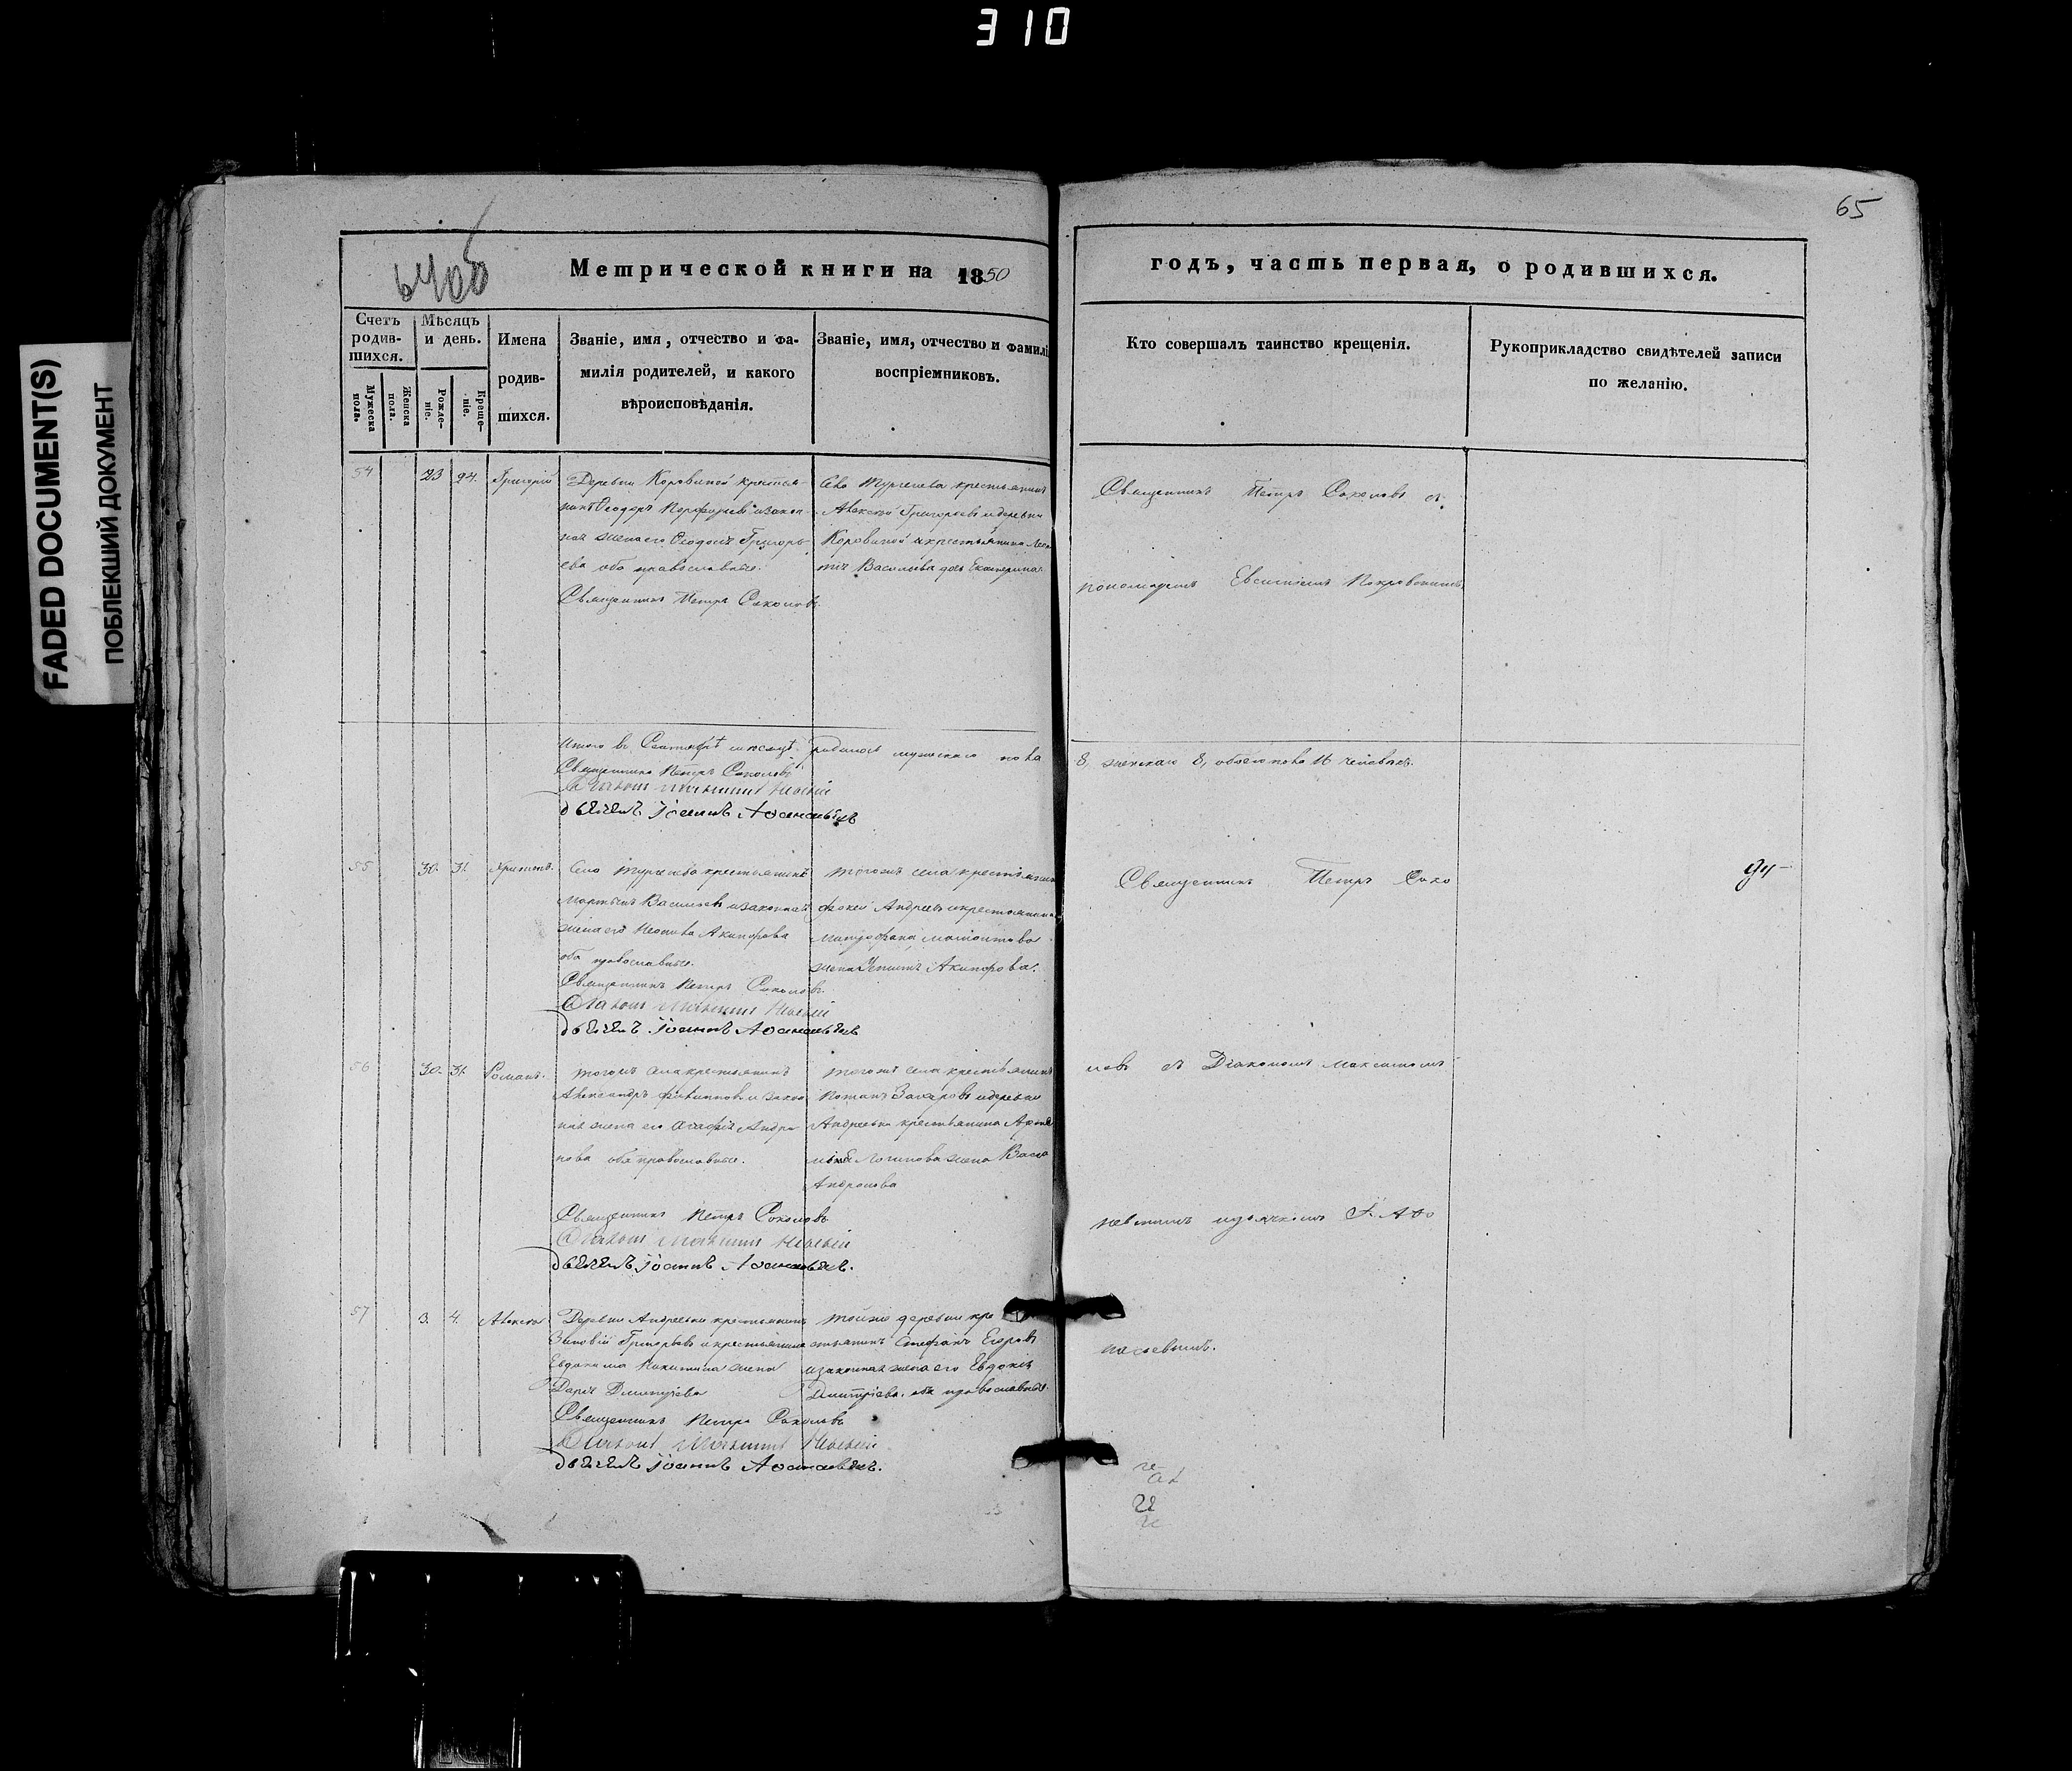 310
FADED DOCUMENT(S)
ПОБЛЕКШИЙ ДОКУМЕНТ
65
Метрической книги на 1850
годъ, часть первая, о родившихся.
Счетъ родив-шихся.
Мужеска пола.
Женска пола.
Мѣсяцъ и день.
Рожде-ніе.
Креще-ніе.
Имена родив-шихся.
Званіе, имя, отчество и фа-
милія родителей, и какого
вѣроисповѣданія.
Званіе, имя, отчество и фамилі
воспріемниковъ.
Кто совершалъ таинство крещенія.
Рукоприкладство свидѣтелей записи
по желанію.
54 23 24. Григорій
Деревни Коровиной крестья-
нинъ Ѳеодоръ Порфирьевъ и закон-
ная жена его Ѳеодосія Григорь-
ева оба православные.
Священникъ Петръ Соколовъ.
Села Тургенева крестьянинъ
Алексѣй Григорьевъ и деревни
Коровиной крестьянина
Васильева дочь Екатерина.
Священникъ Петръ Соколовъ съ
пономаремъ Евсигніемъ Покровскимъ
Итого въ Сентябрѣ мѣсяцѣ родилось мужескаго пола
8, женскаго 8, обоего пола 16 человѣкъ.
Священникъ Петръ Соколовъ
Діаконъ Максимъ Невскій
дьячекъ Іоаннъ Аѳанасьевъ
55 30. 31.
Села Тургенева крестьянинъ
Мартынъ Васильевъ и законная
жена его Акипорова
оба православные.
Священникъ Петръ Соколовъ.
Діаконъ Максимъ Невскій
дьячекъ Іоаннъ Аѳанасьевъ
тогожъ села крестьянинъ
Фокей Андреевъ и крестьянина
Митрофана
жена Акипорова.
Священникъ Петръ Соко
56 30. 31. Романъ.
тогожъ села крестьянинъ
Александръ Филипповъ и закон
ная жена его Агафія Андро
нова оба православные.
Священникъ Петръ Соколовъ
Діаконъ Максимъ Невскій
дьячекъ Іоаннъ Аѳанасьевъ.
тогожъ села крестьянинъ
Потапъ Захаровъ и деревни
Андреевки крестьянина
Логинова жена Васса
Андронова
ловъ съ Діакономъ Максимомъ
Невскимъ и дьячкомъ І. Аѳа
насьевымъ.
57 3. 4. Алексѣй
Деревни Андреевки крестьянинъ
Зиновій Григорьевъ и крестьянина
Евдокима Никитина жена
Дарія Дмитріева
Священникъ Петръ Соколовъ
Діаконъ Максимъ Невскій
дьячекъ Іоаннъ Аѳанасьевъ.
тойже деревни кре
стьянинъ Стефанъ Егоровъ
и законная жена его Евдокія
Дмитріева. оба православные.